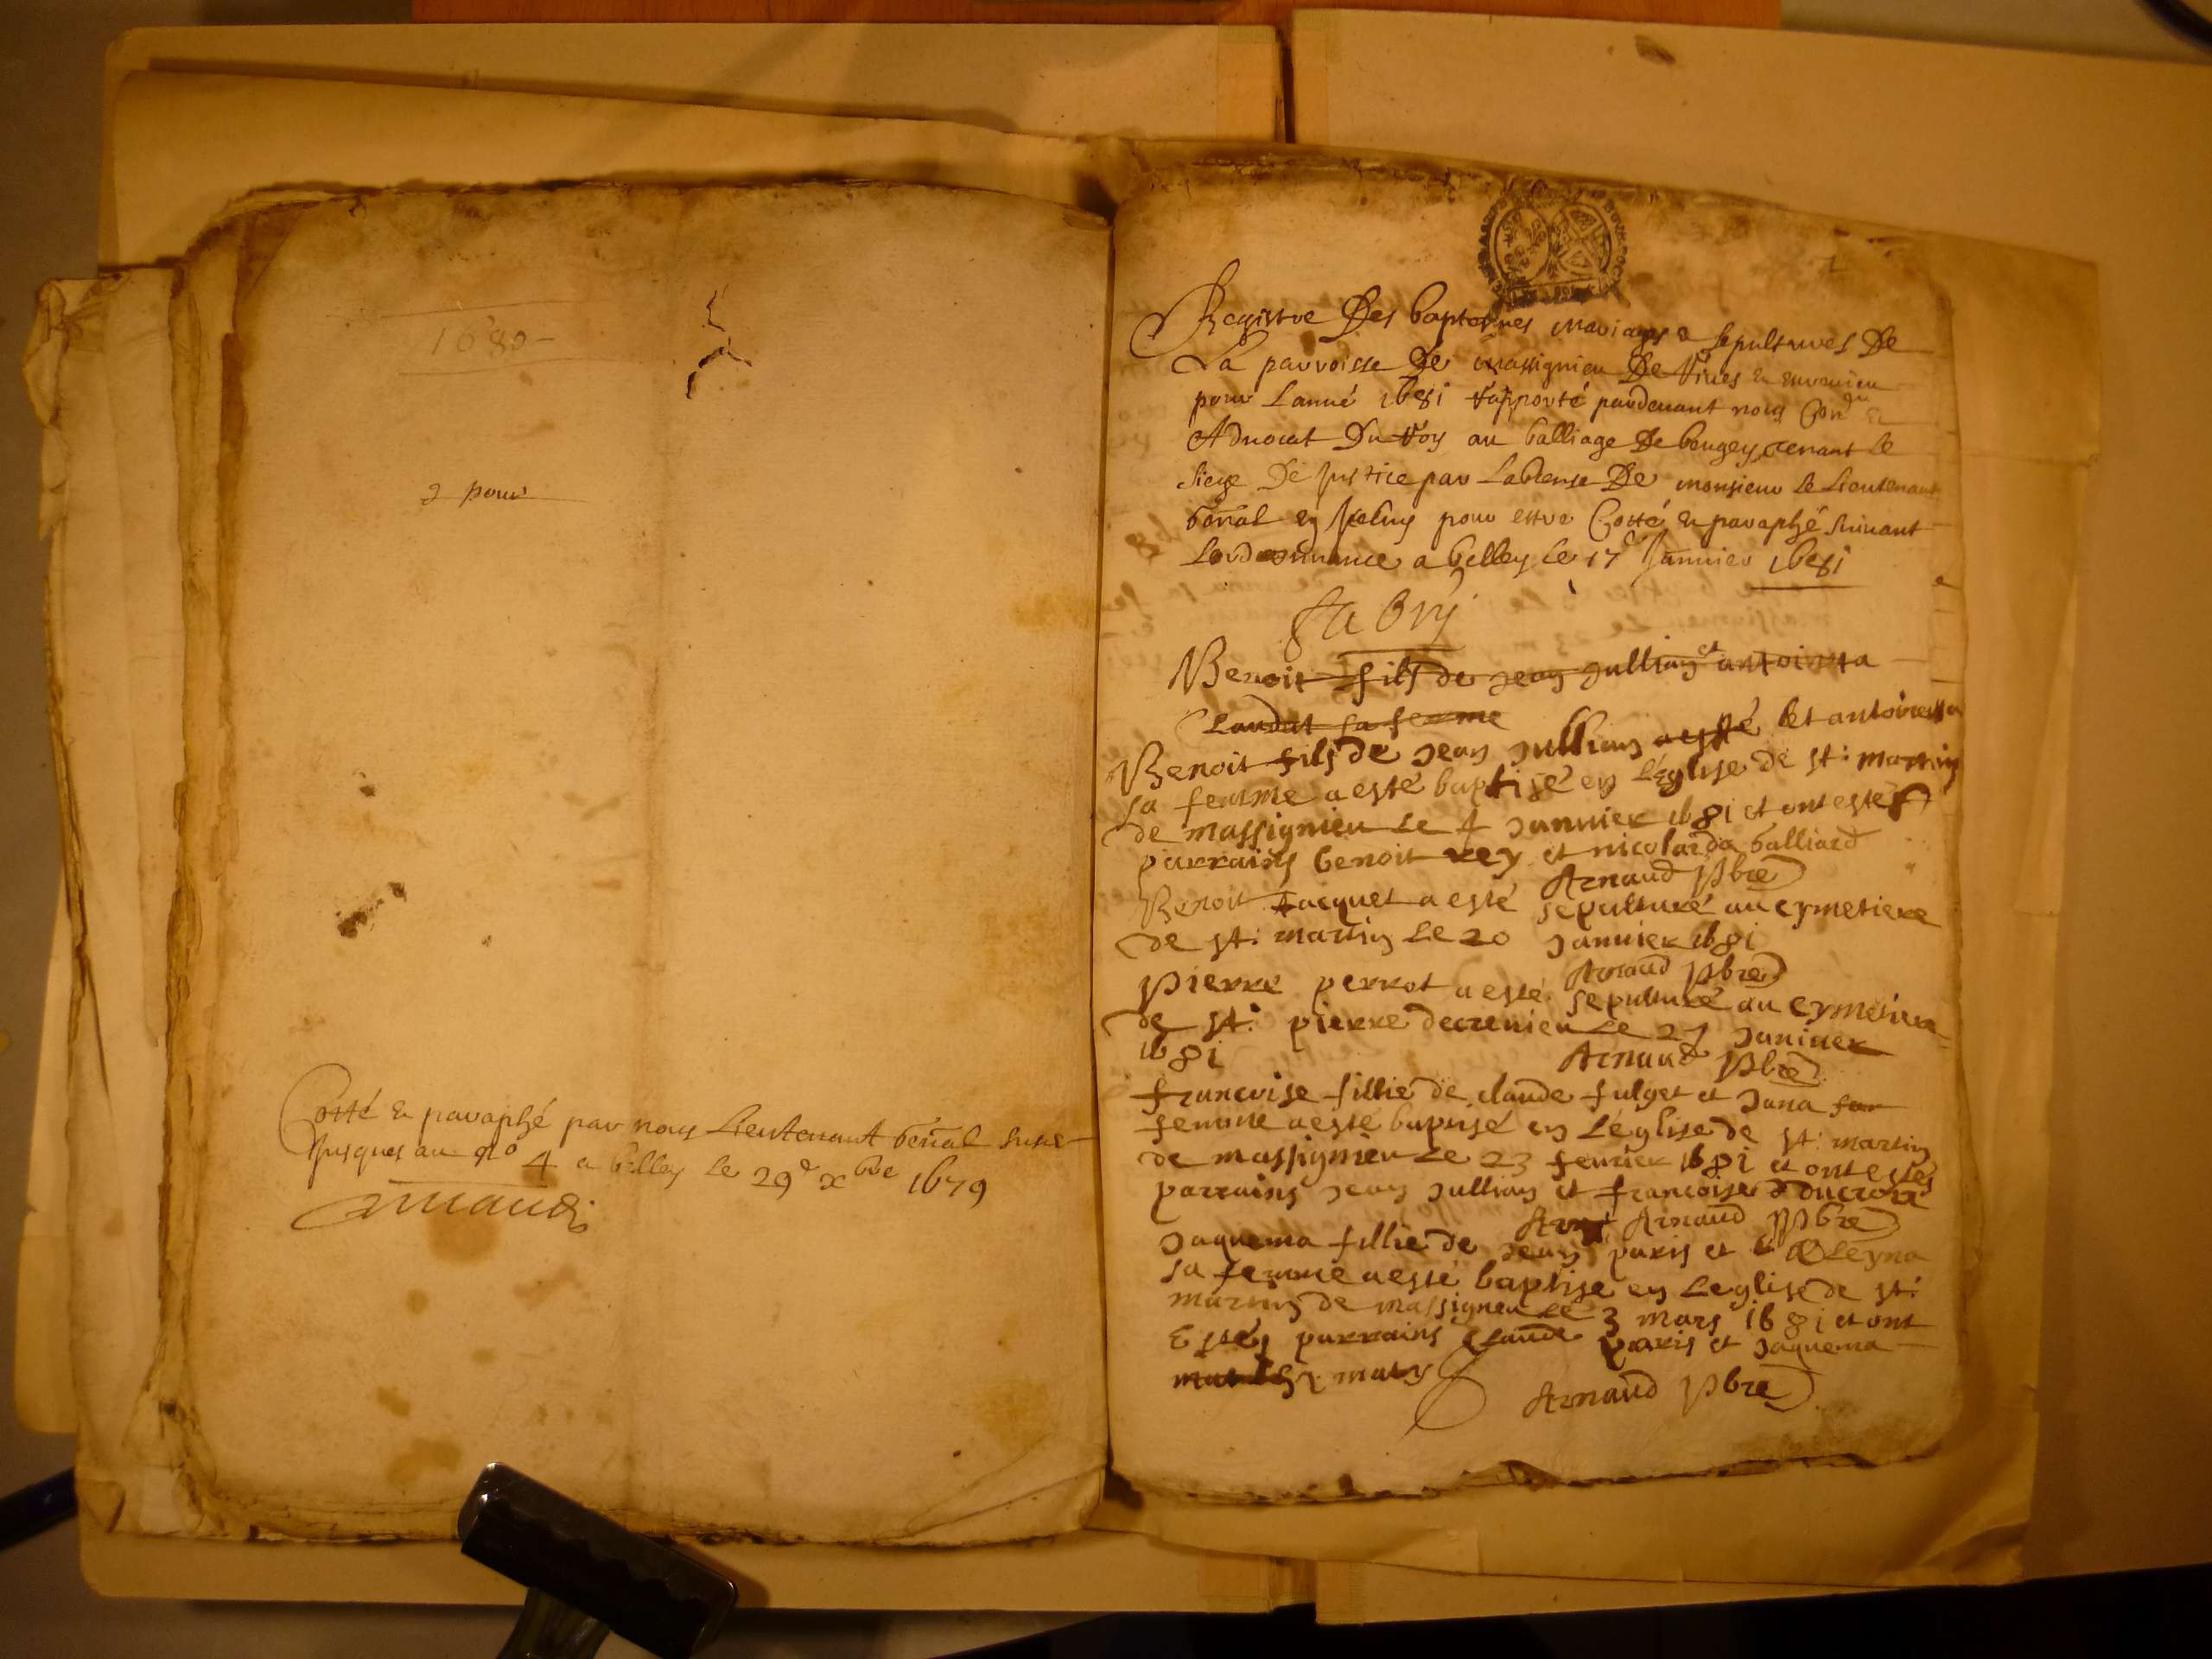 1680
2 pour
Cotté & paraphé par nous Lieutenant genal
Jusques au no 4 a belley le 29e xbre 1679
Registre Des baptesmes mariages & sepultures De
La parroisse De massignieu De Rives &
pour Lanné 1681 rapporté pardevant nous
Advocat Du Roy au balliage De beugey tenant le
siege De justice par Labsense De monsieur le Lieutenant
genal pour estre Cotté & paraphé suivant
Lordonnance a belley le 17e Janvier 1681
fabry
Benoit fils de jean jullian et antoinetta
sa femme
Benoit fils de jean jullian a esté et antoinetta
sa femme a esté baptisé en L'église de st: martin
de massignieu Le 4 janvier 1681 et ont estés
parrains benoit rey et nicolarda galliard
Arnaud pbre
Benoit jacquet a esté sepulturé au cymetiere
de st: martin Le 20 janvier 1681
Arnaud pbre
pierre perrot a esté sepulturé au cymetiere
de st: pierre decrenieu Le 27 janivier
1681
Arnaud pbre
francoise fillie de claude fulget et jana
femme a esté baptisé en L'église de st: martin
de massignieu Le 23 fevrier 1681 et ont estés
parrains jean jullian et francoise ducroix
Arnaud pbre
jaquema fillie de jean paris et
sa femme a esté baptise en Leglise de st:
martin de massigneu Le 3 mars 1681 et ont
Estés parrains claude paris et jaquema
mary
Arnaud pbre